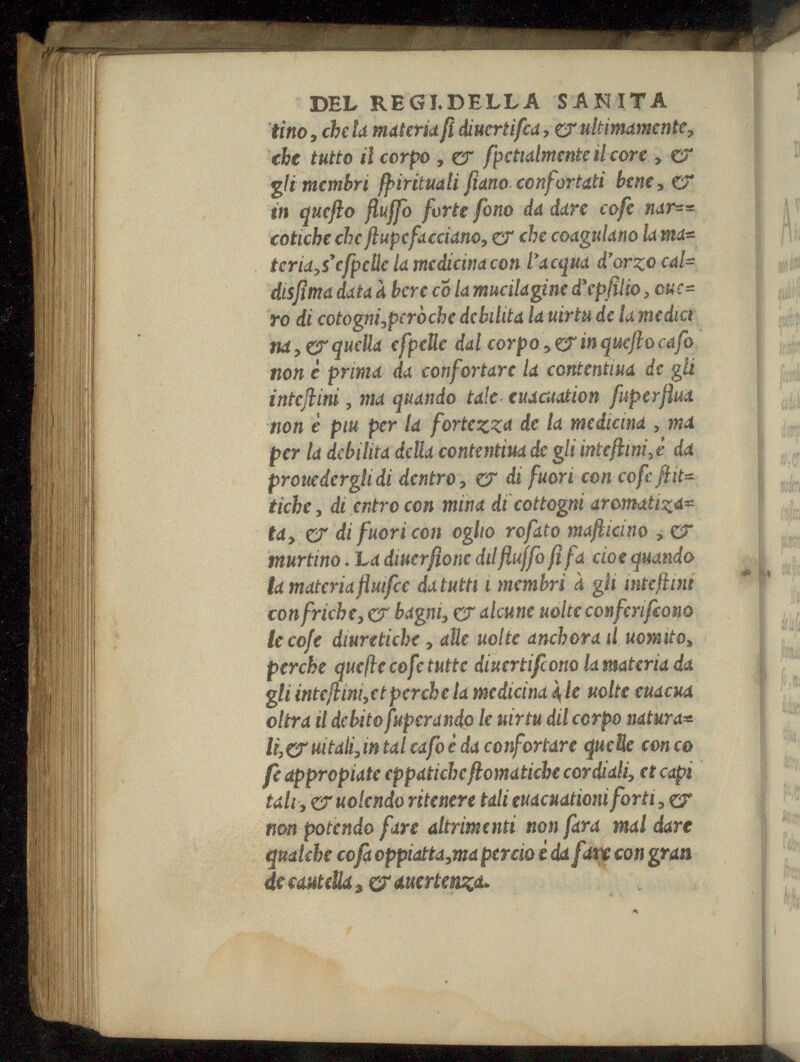 DEL REGI.DELLA SANITA
tino, che la materia ſi diuertiſca, & ultimamente,
che tutto il corpo, & ſpetialmente il core, &
gli membri ſpirituali ſiano confortati bene, &
in queſto fluſſo forte ſono da dare coſe nar==
cotiche che ſtupefacciano, & che coagulano la ma=
teria, s'eſpelle la medicina con l'acqua d'orzo cal=
disſima data à bere cõ la mucilagine d'epſilio, oue=
ro di cotogni, però che debilita la uirtu de la medici
na, & quella eſpelle dal corpo, & in queſto caſo
non è prima da confortare la contentiua de gli
inteſtini, ma quando tale euacuation ſuperflua
non è piu per la fortezza de la medicina, ma
per la debilita della contentiua de gli inteſtini, è da
prouedergli di dentro, & di fuori con coſe ſtit=
tiche, di entro con mina di cottogni aromatiza=
ta, & di fuori con oglio roſato maſticino, &
murtino. La diuerſione dil fluſſo ſi fa cioe quando
la materia fluiſce da tutti i membri à gli inteſtini
con friche, & bagni, & alcune uolte conferiſcono
le coſe diuretiche, alle uolte anchora il uomito,
perche queſte coſe tutte diuertiſcono la materia da
gli inteſtini, et perche la medicina à le uolte euacua
oltra il debito ſuperando le uirtu dil corpo natura=
li, & uitali, in tal caſo è da confortare quelle con co
ſe appropiate eppatiche ſtomatiche cordiali, et capi
tali, & uolendo ritenere tali euacuationi forti, &
non potendo fare altrimenti non ſara mal dare
qualche coſa oppiatta, ma percio è da fare con gran
de cautella, & auertenza.